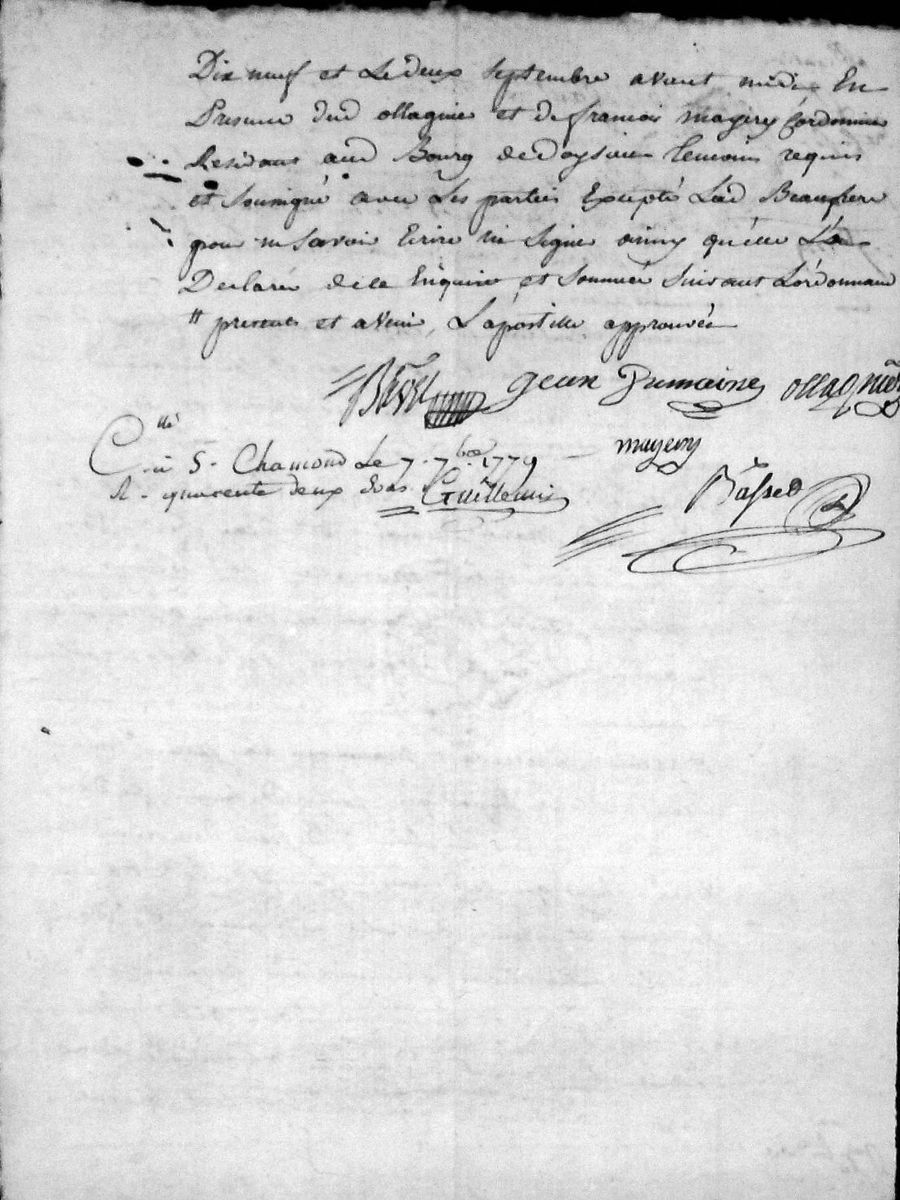 Dix neuf et Le deux septembre avant midi En
Presence dud ollagnier et de francois mayery Cordonnier
Residans aud Bourg de doysieu temoins requis
et soussigné avec Les parties Excepté Lad Beaufrere
pour ne savoir Ecrire ni signer ainsy qu'elle L'a
Declaré de ce Enquise et sommée suivant L'ordonnance
# presents et avenir, L'apostille approuvée
jean Dumaine ollagnier
mayery
Cllé à St Chamond Le 7. 7bre 1779
R. quarente deux sols Guillemin
Basset